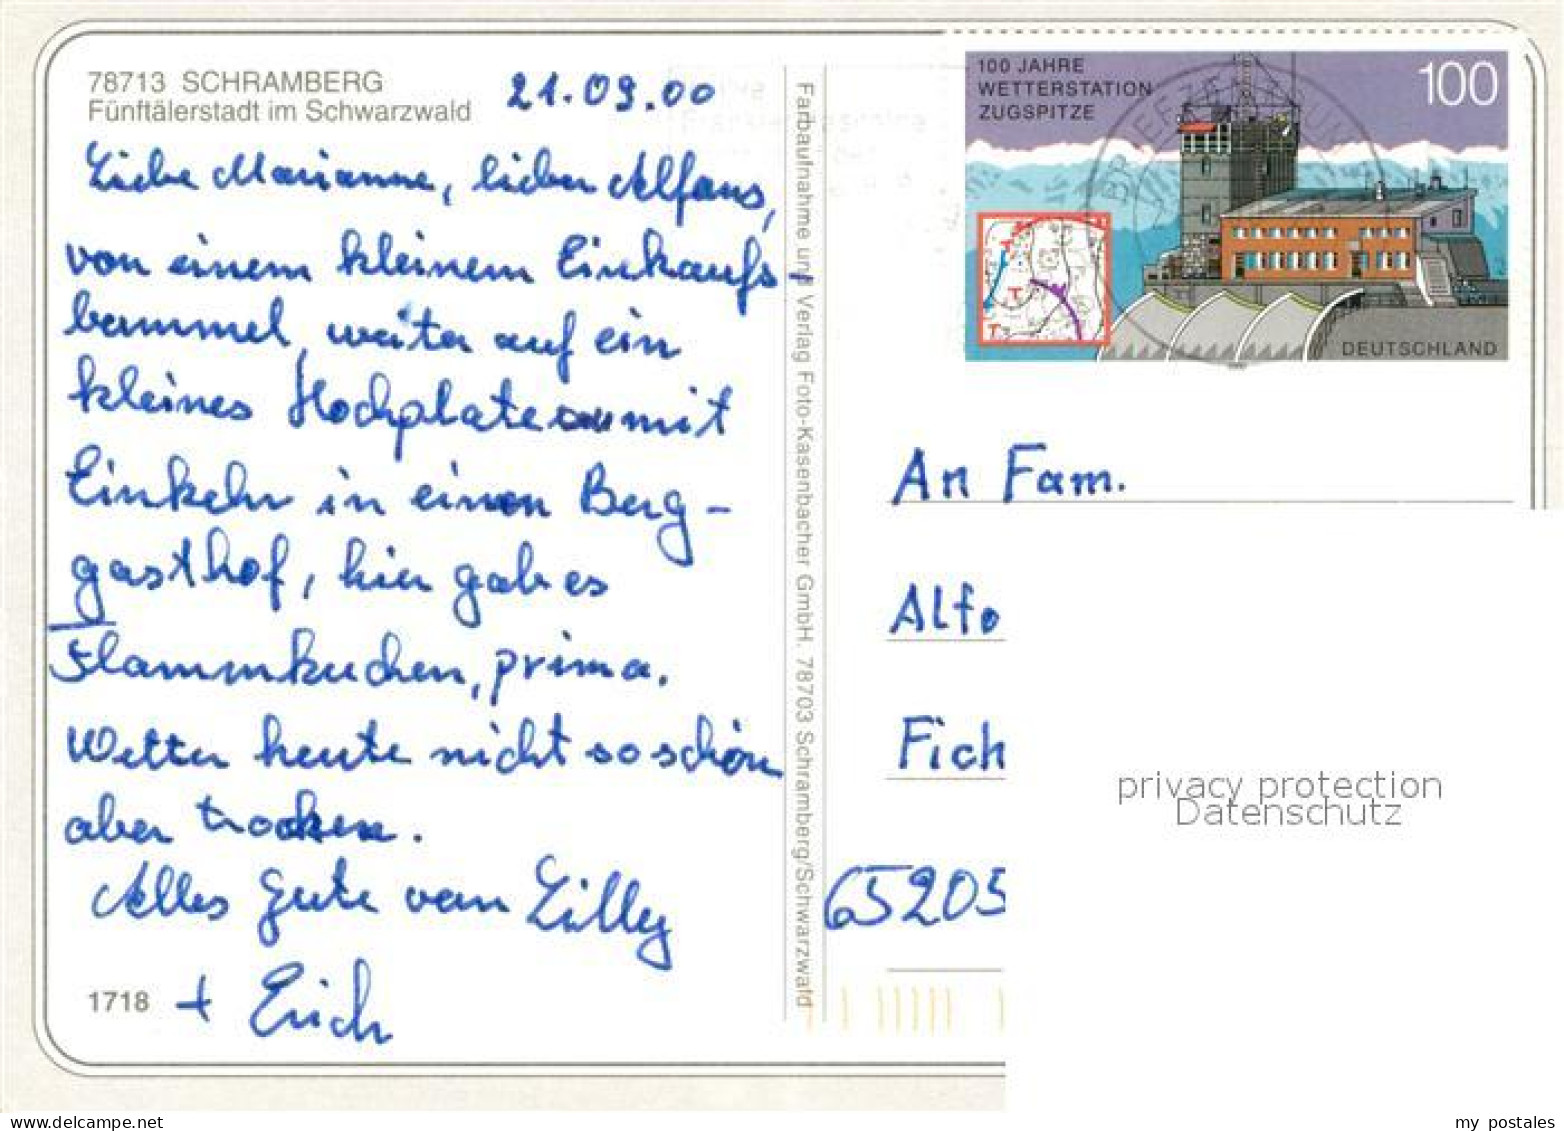 78713 SCHRAMBERG
Fünftälerstadt im Schwarzwald
21.09.00
Liebe Marianne, lieber Alfons,
von einem kleinen Einkaufs-
bummel, weiter auf ein
kleines Hochplateau mit
Einkehr in einen Berg-
gasthof, hier gab es
Flammkuchen, prima.
Wetter heute nicht so schön
aber trocken.
Alles Gute von Lilly
+ Erich
1718
Farbaufnahme und Verlag Foto-Kasenbacher GmbH. 78703 Schramberg/Schwarzwald
100 JAHRE
WETTERSTATION
ZUGSPITZE
100
DEUTSCHLAND
BRIEFZENTRUM
T
T
T
An Fam.
Alfo
Fich
65205
privacy protection
Datenschutz
my postales
www.delcampe.net